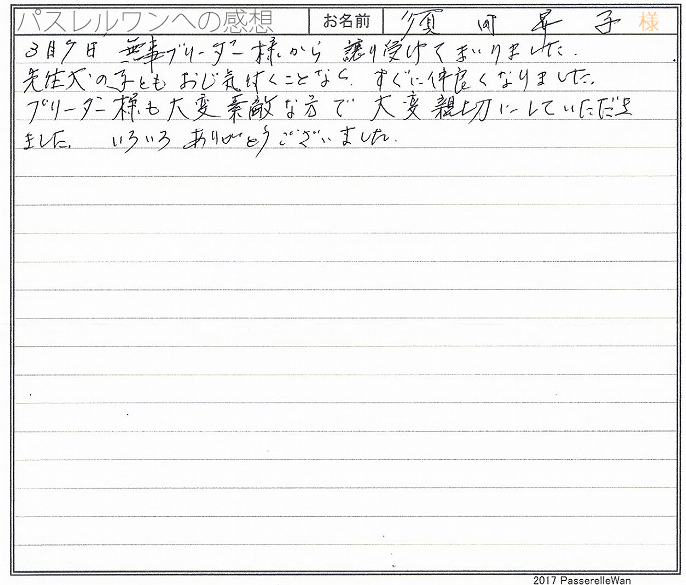 パスレルワンへの感想 お名前 須 町 子 様
3月9日 無事ブリーダー様から 譲り受けてまいりました。
先住犬の子とも おじ気付くことなく、すぐに仲良くなりました。
ブリーダー様も大変素敵な方で 大変親切にしていただき
ました。 いろいろ ありがとうございました。
2017 PasserelleWan